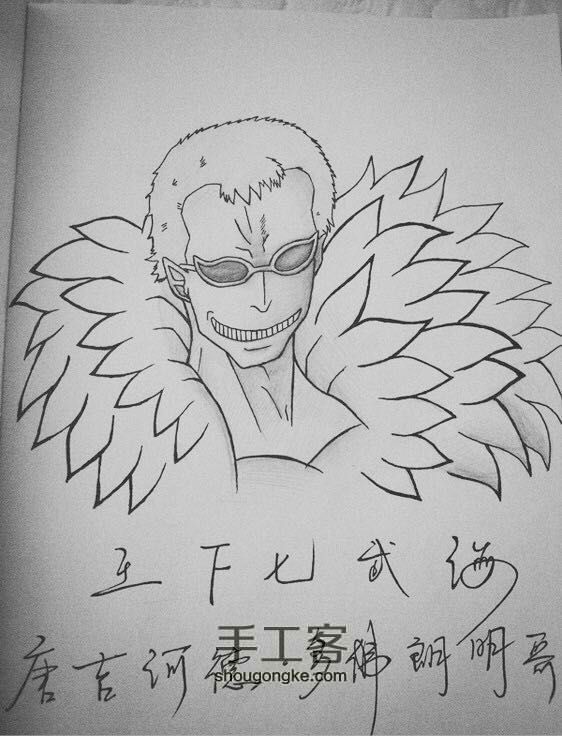 王下七武海
唐吉诃德·多佛朗明哥
手工客
shougongke.com